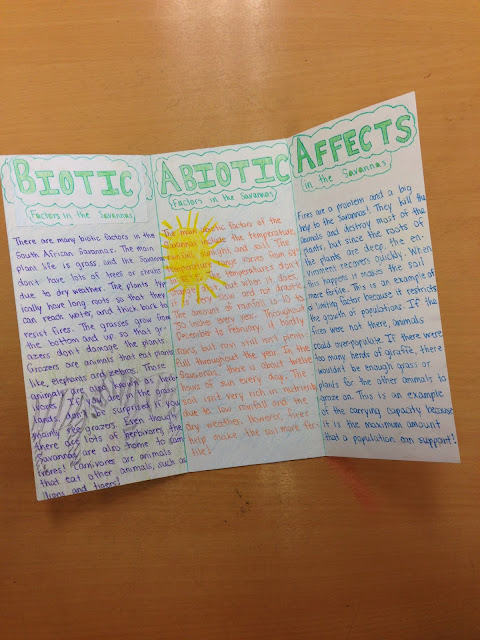 BIOTIC
Factors in the Savannas
There are many biotic factors in the
South African Savannas. The main
plant life is grass and the Savannas
don't have lots of trees or shrubs
due to dry weather. The plants typ-
ically have long roots so that they
can reach water, and thick bark to
resist fires. The grasses grow from
the bottom and up so that gr-
azers don't damage the plants.
Grazers are animals that eat plants
like, elephants and zebras. Those
animals are also known as herb-
ivores. If you are in the grass-
lands, don't be surprised if you
mainly see grazers. Even though
there are lots of herbivores, the
Savannas are also home to carni-
vores! Carnivores are animals
that eat other animals, such as
lions and tigers!
ABIOTIC
Factors in the Savannas
The main abiotic factors of the
Savanna include the temperature,
rainfall, sunlight and soil. The
temperature range varies from
temperatures don't
but when it does,
very slow and not drastic.
The amount of rainfall is 10 to
30 inches every year. Throughout
December to February, it hardly
rains, but can still rain plenty
fall throughout the year. In the
Savannas, there is about twelve
hours of sun every day. The
soil isn't very rich in nutrients
due to low rainfall and the
dry weather. However, fires
help make the soil more fer-
tile!
AFFECTS
in the Savannas
Fires are a problem and a big
help to the Savannas! They kill the
animals and destroy most of the
plants, but since the roots of
the plants are deep, the env-
ironment recovers quickly. When
this happens it makes the soil
more fertile. This is an example of
a limiting factor because it restricts
the growth of populations. If the
fires were not there, animals
could overpopulate. If there were
too many herds of giraffe, there
wouldn't be enough grass or
plants for the other animals to
graze on. This is an example
of the carrying capacity because
it is the maximum amount
that a population can support!